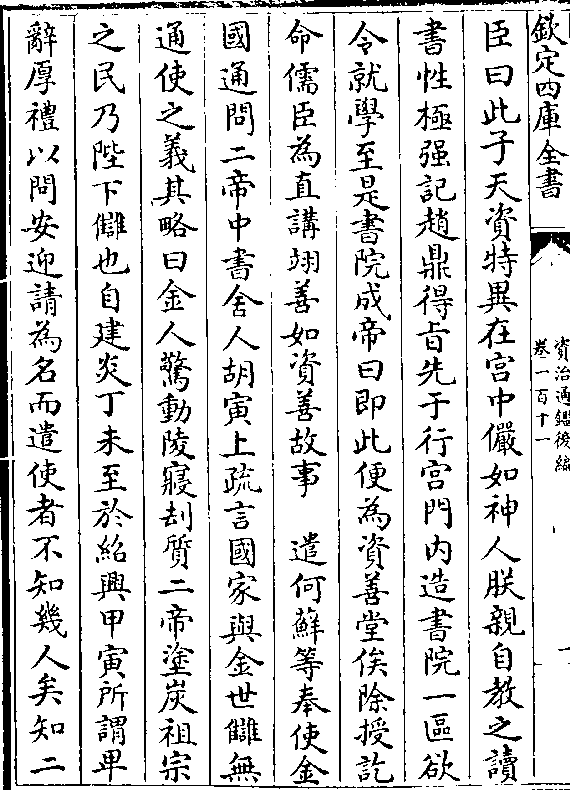 欽定四庫全書
資治通鑑後編
卷一百十一
臣曰此子天資特異在宮中儼如神人朕親自教之讀
書性極强記趙鼎得旨先于行宮門内造書院一區欲
令就學至是書院成帝曰即此便為資善堂俟除授訖
命儒臣為直講翊善如資善故事　遣何蘇等奉使金
國通問二帝中書舍人胡寅上疏言國家與金世讎無
通使之義其略曰金人驚動陵寢刦質二帝塗炭祖宗
之民乃陛下讎也自建炎丁未至於紹興甲寅所謂卑
辭厚禮以問安迎請為名而遣使者不知幾人矣知二